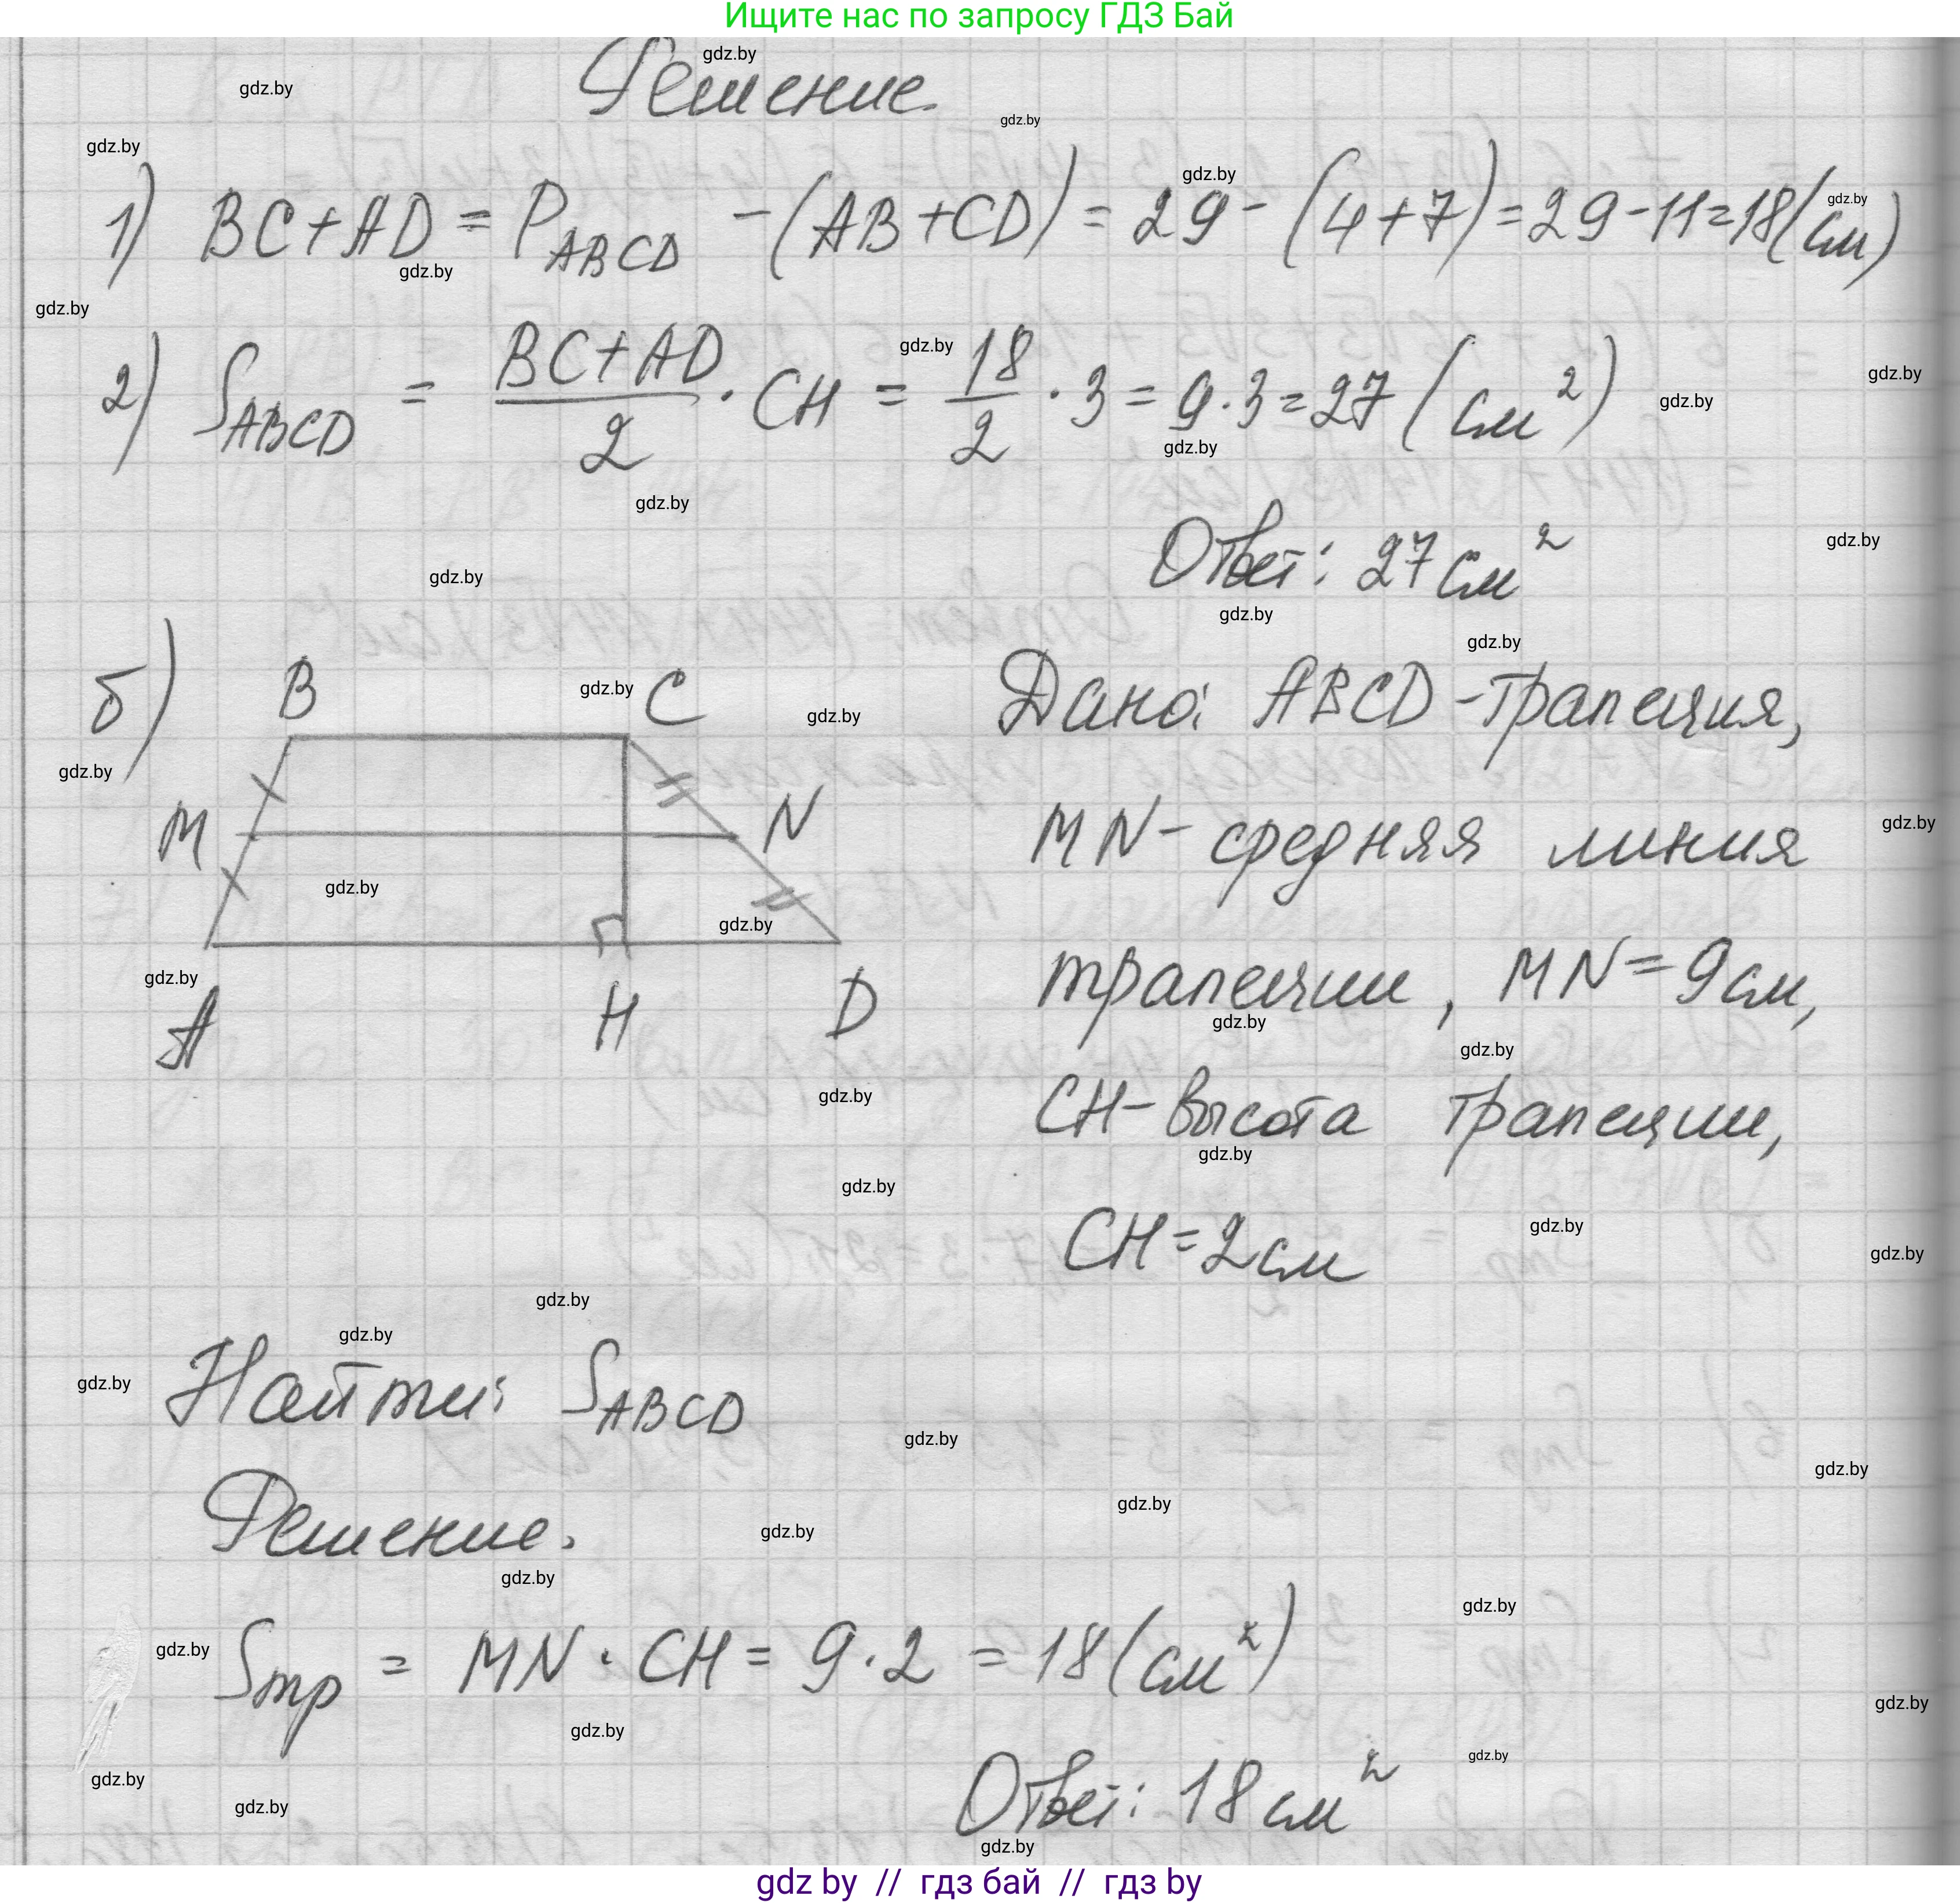 Ищите нас по запросу ГДЗ Бай
Решение.
1) BC+AD = P_ABCD -(AB+CD) = 29 - (4+7) = 29-11=18(см)
2) S_ABCD = (BC+AD)/2 · CH = 18/2 · 3 = 9·3=27 (см²)
Ответ: 27 см²
б)
B C
M N
A H D
Дано: ABCD - трапеция,
MN - средняя линия
трапеции, MN=9см,
CH - высота трапеции,
CH=2см
Найти: S_ABCD
Решение.
S_тр = MN · CH = 9·2 = 18(см²)
Ответ: 18 см²
gdz by // гдз бай // гдз by